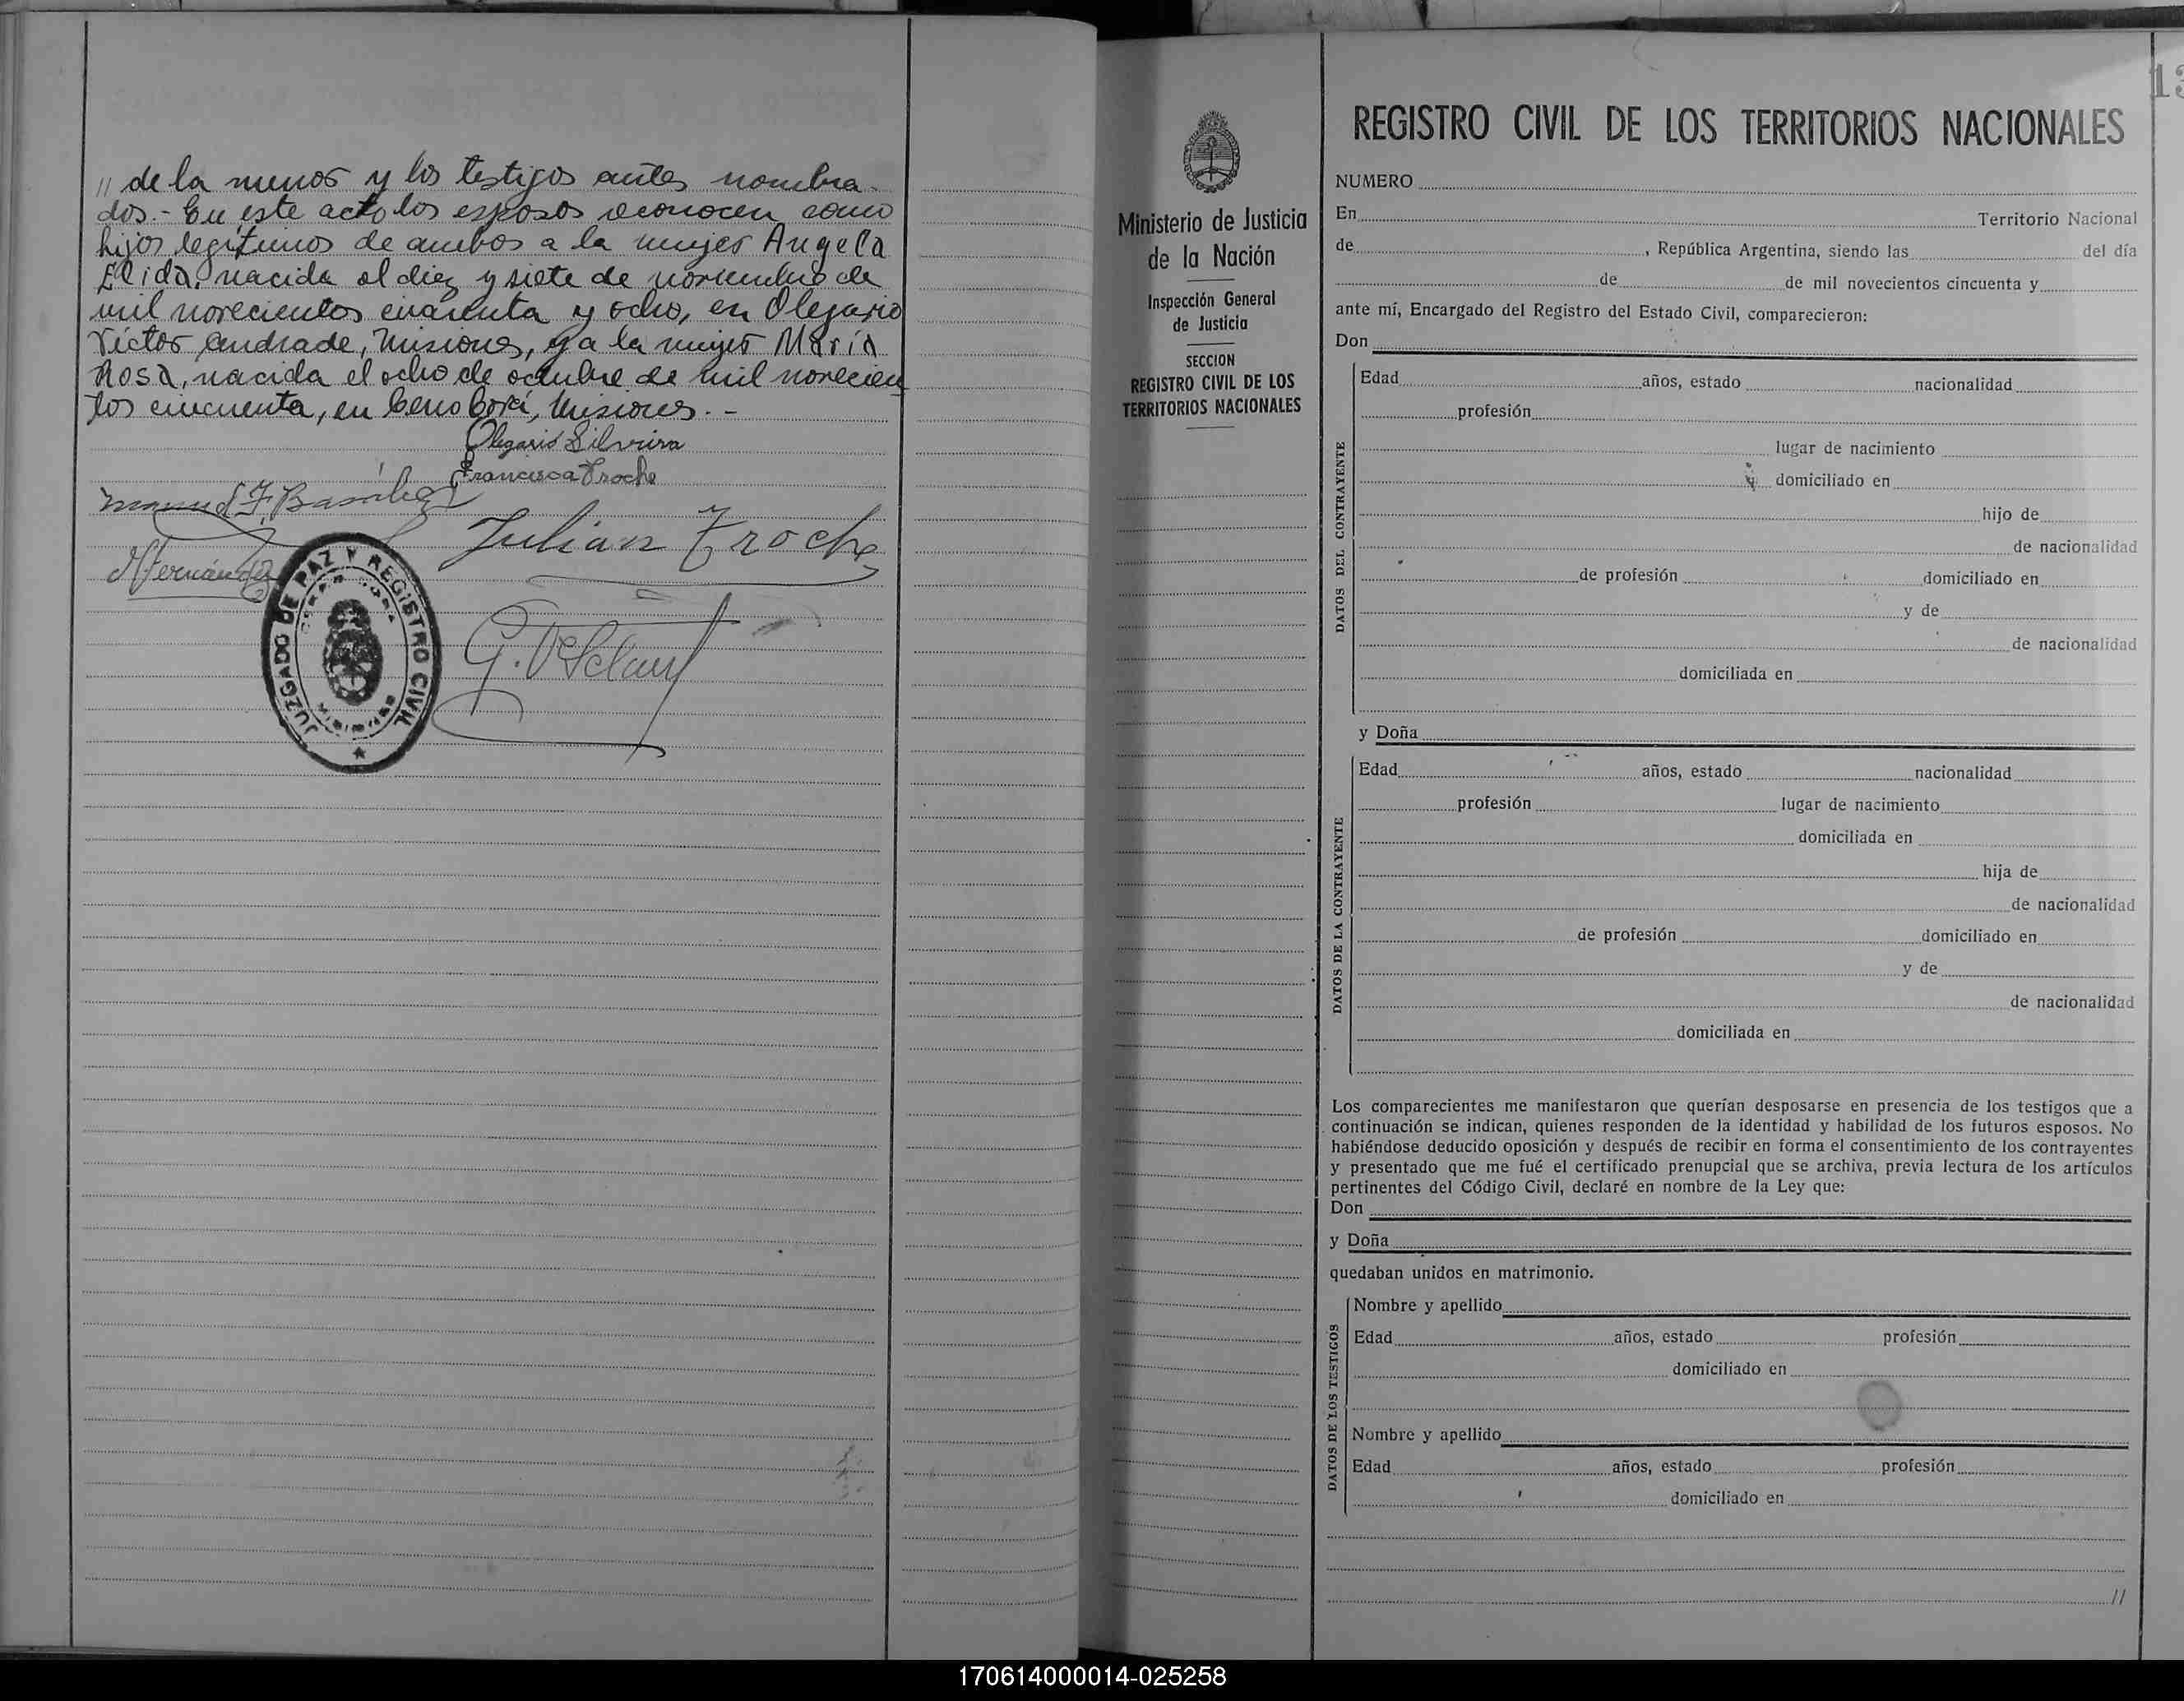 // de la menor y los testigos antes nombra-
dos.- En este acto los esposos reconocen como
hijos legítimos de ambos a la mujer Angela
Elida, nacida el diez y siete de noviembre de
mil novecientos cuarenta y ocho, en Olegario
Víctor Andrade, Misiones, y a la mujer María
Rosa, nacida el ocho de octubre de mil novecien
tos cincuenta, en Cerro Corá, Misiones.-
Olegario Silveira
Francisca Troche
Julian Troche
JUZGADO DE PAZ Y REGISTRO CIVIL
13
REGISTRO CIVIL DE LOS TERRITORIOS NACIONALES
Ministerio de Justicia
de la Nación
Inspección General
de Justicia
SECCION
REGISTRO CIVIL DE LOS
TERRITORIOS NACIONALES
NUMERO
En Territorio Nacional
de , República Argentina, siendo las del día
de de mil novecientos cincuenta y
ante mí, Encargado del Registro del Estado Civil, comparecieron:
Don
DATOS DEL CONTRAYENTE
Edad años, estado nacionalidad
profesión
lugar de nacimiento
domiciliado en
hijo de
de nacionalidad
de profesión domiciliado en
y de
de nacionalidad
domiciliada en
y Doña
DATOS DE LA CONTRAYENTE
Edad años, estado nacionalidad
profesión lugar de nacimiento
domiciliada en
hija de
de nacionalidad
de profesión domiciliado en
y de
de nacionalidad
domiciliada en
Los comparecientes me manifestaron que querían desposarse en presencia de los testigos que a
continuación se indican, quienes responden de la identidad y habilidad de los futuros esposos. No
habiéndose deducido oposición y después de recibir en forma el consentimiento de los contrayentes
y presentado que me fué el certificado prenupcial que se archiva, previa lectura de los artículos
pertinentes del Código Civil, declaré en nombre de la Ley que:
Don
y Doña
quedaban unidos en matrimonio.
DATOS DE LOS TESTIGOS
Nombre y apellido
Edad años, estado profesión
domiciliado en
Nombre y apellido
Edad años, estado profesión
domiciliado en
//
170614000014-025258